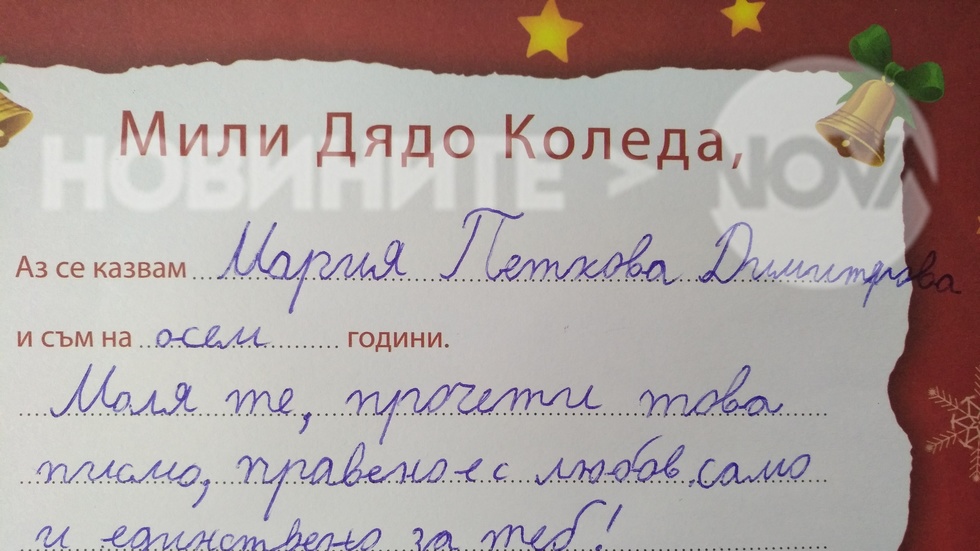 Мили Дядо Коледа,
НОВИНИТЕ > NOVA
Аз се казвам Мария Петкова Димитрова
и съм на осем години.
Моля те, прочети това
писмо, правено е с любов само
и единствено за теб!